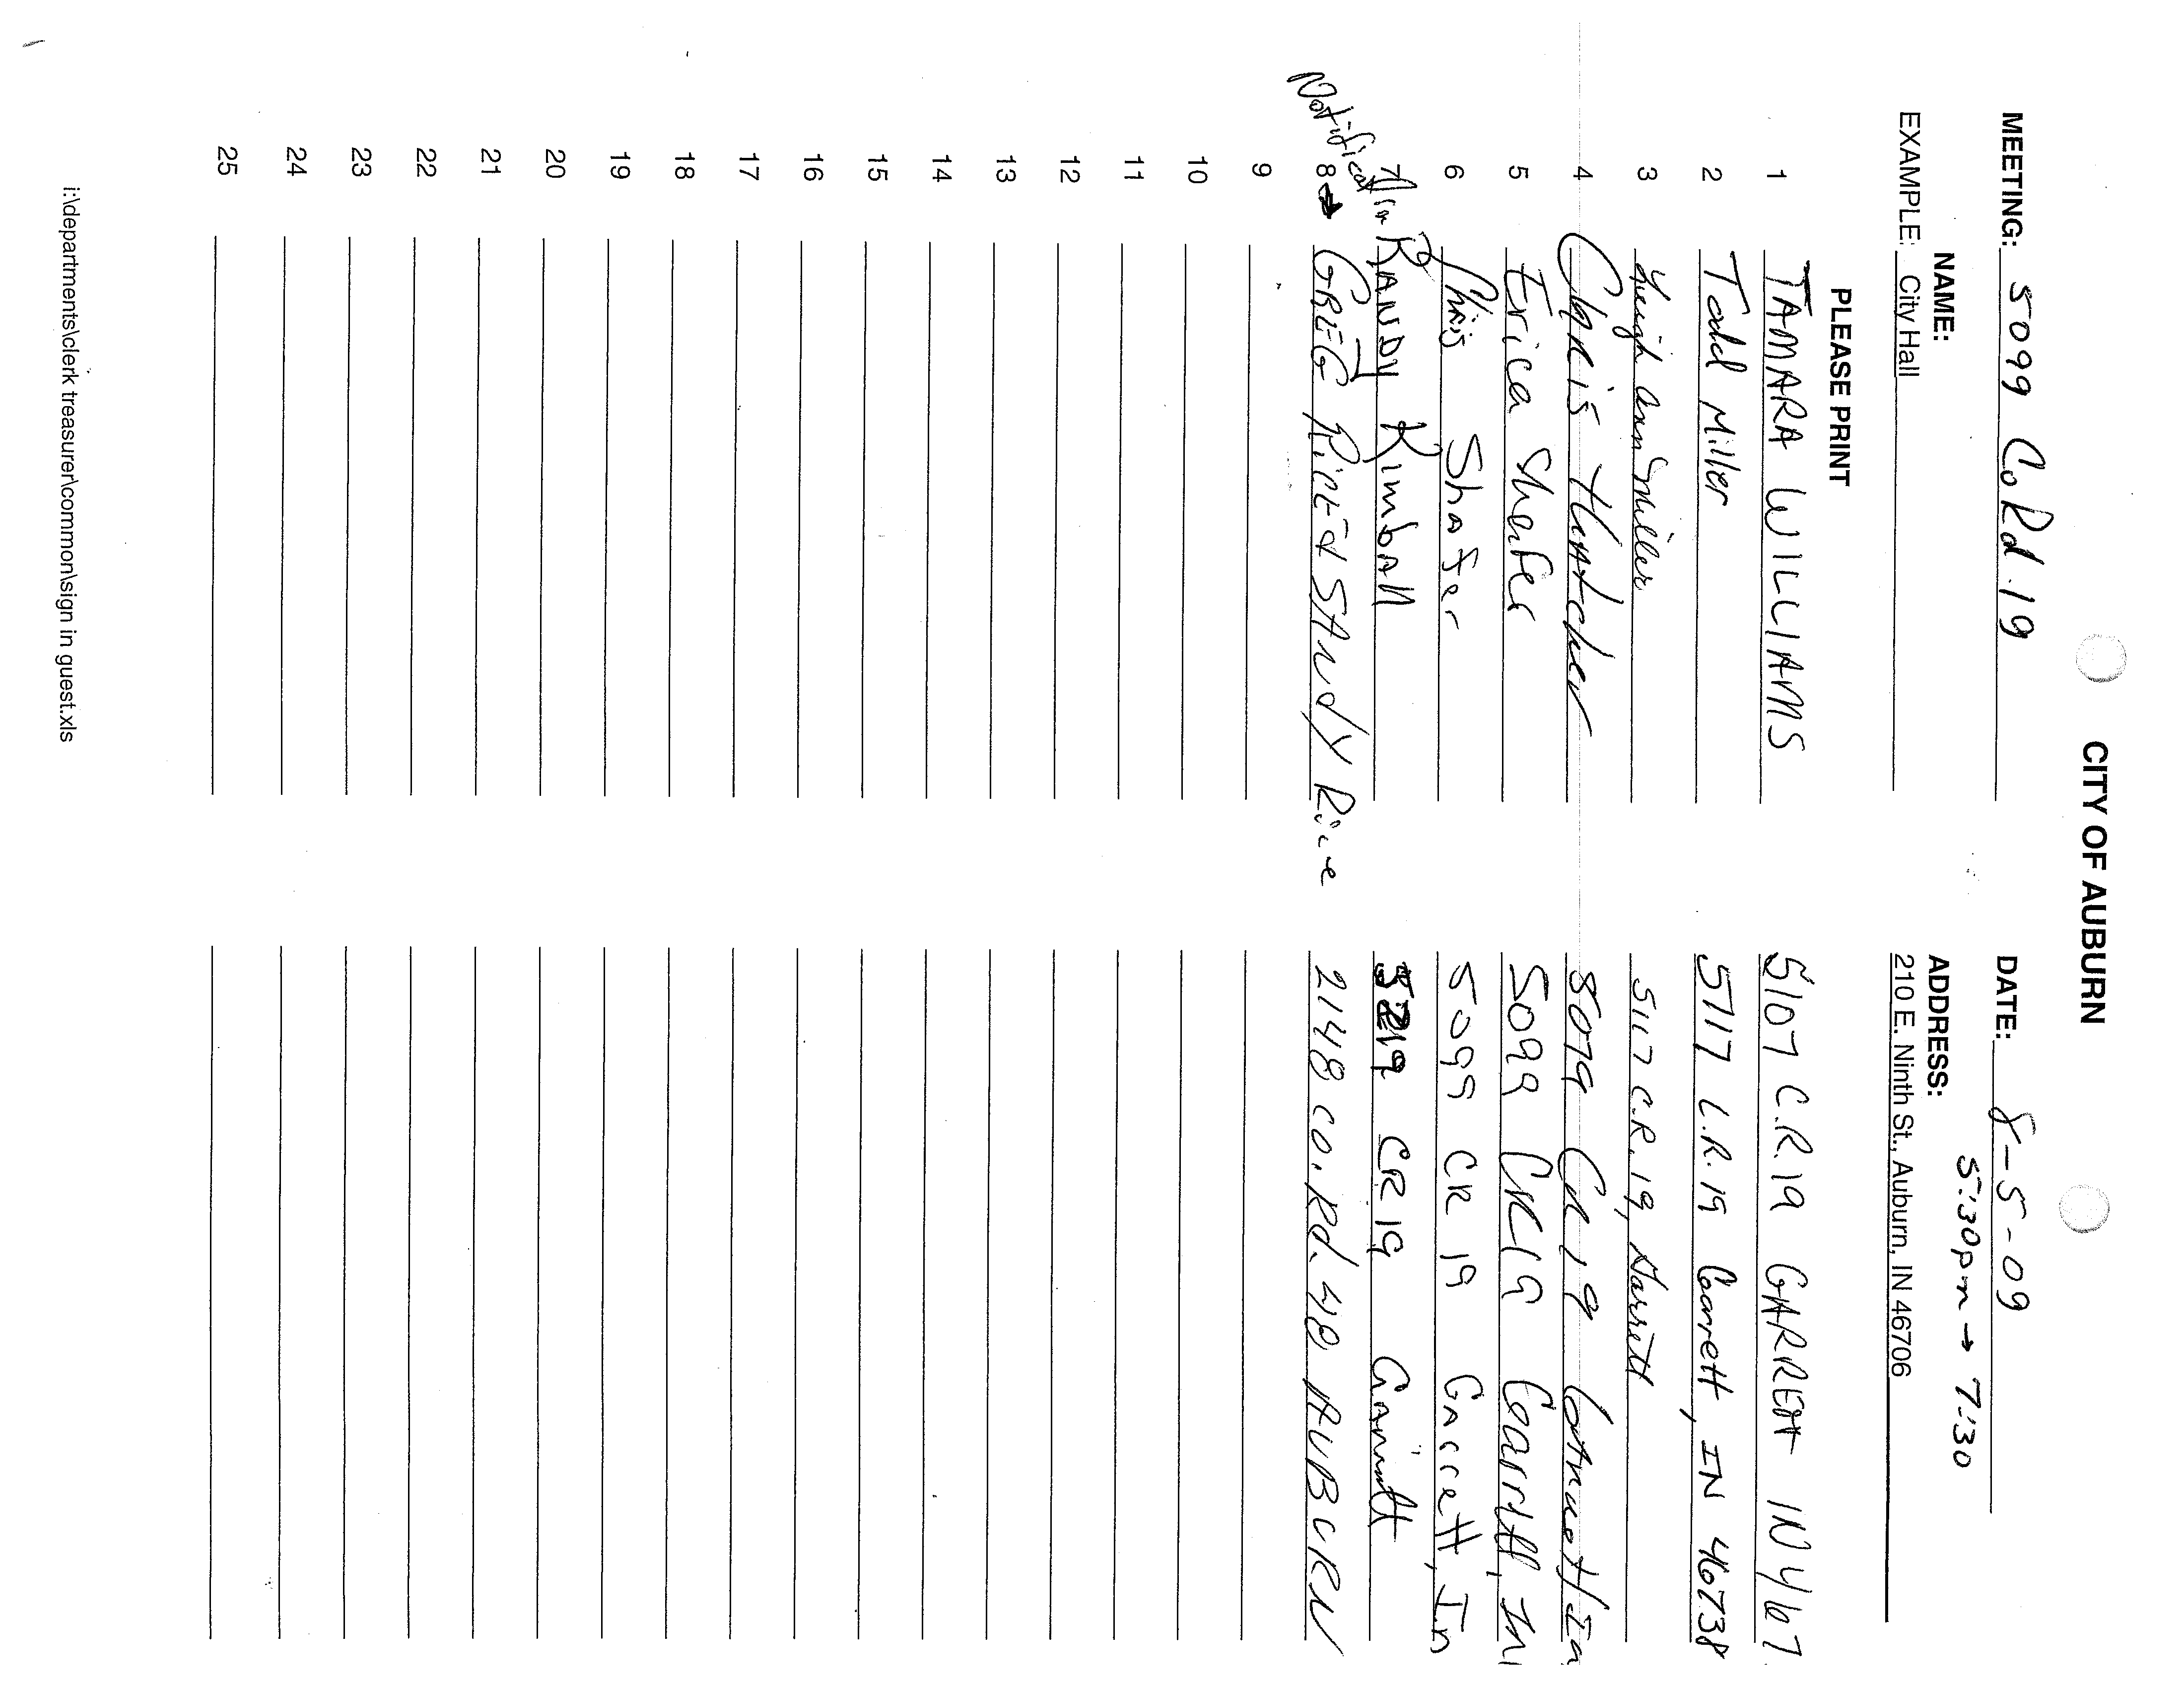 CITY OF AUBURN
MEETING: 5099 Co Rd. 19 DATE: 8-5-09
5:30pm → 7:30
NAME: ADDRESS:
EXAMPLE: City Hall 210 E. Ninth St., Auburn, IN 46706
PLEASE PRINT
1 TAMARA WILLIAMS 5107 C.R. 19 GARRETT IN 467
2 Todd Miller 5117 C.R. 19 Garrett, IN 46738
3 Leigh Ann Miller 5117 C.R. 19, Garrett
4 Chris Hatcher 5079 CR 19 Garrett In
5 Erica Shafer 5099 CR 19 Garrett, In
6 Chris Shafer 5099 CR 19 Garrett, In
7 RANDY Kimball 5219 CR 19 Garrett
Notification
8 → GREG RICE & SANDY Rice 2148 CO. Rd. 48 AUBURN
9
10
11
12
13
14
15
16
17
18
19
20
21
22
23
24
25
i:\departments\clerk treasurer\common\sign in guest.xls